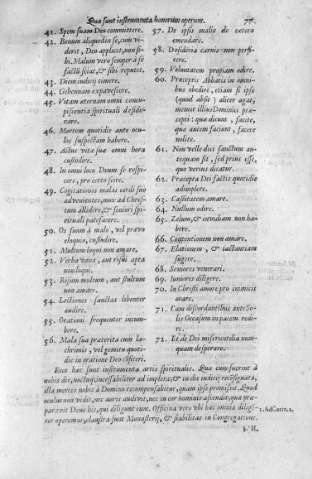 Quæ sunt instrumenta bonorum operum. 77
41. Spem suam Deo committere.
42. Bonum aliquod in se, cum vi-
derit, Deo applicet, non si-
bi. Malum vero semper à se
factũ sciat, & sibi reputet.
43. Diem iudicij timere.
44. Gehennam expavescere.
45. Vitam æternam omni concu-
piscentia spirituali deside-
rare.
46. Mortem quotidie ante ocu-
los suspectam habere.
47. Actus vitæ suæ omni hora
custodire.
48. In omni loco Deum se respi-
cere, pro certo scire.
49. Cogitationes malas cordi suo
advenientes, mox ad Chri-
stum allidere, & seniori spi-
rituali patefacere.
50. Os suum à malo, vel pravo
eloquio, custodire.
51. Multum loqui non amare.
52. Verba vana, aut risui apta
non loqui.
53. Risum multum, aut excussum
non amare.
54. Lectiones sanctas libenter
audire.
55. Orationi frequenter incum-
bere.
56. Mala sua præterita cum la-
chrymis, vel gemitu quoti-
die in oratione Deo confiteri.
57. De ipsis malis de cetero
emendari.
58. Desideria carnis non perfi-
cere.
59. Voluntatem propriam odire.
60. Præceptis Abbatis in omni-
bus obedire, etiam si ipse
(quod absit) aliter agat,
memor illius Dominici præ-
cepti: quæ dicunt, facite,
quæ autem faciunt, facere
nolite.
61. Non velle dici sanctum an-
tequam sit, sed prius esse,
quo verius dicatur.
62. Præcepta Dei factis quotidie
adimplere.
63. Castitatem amare.
64. Nullum odire.
65. Zelum, & invidiam non ha-
bere.
66. Contentionem non amare.
67. Elationem, & iactantiam
fugere.
68. Seniores venerari.
69. Iuniores diligere.
70. In Christi amore pro inimicis
orare.
71. Cum discordantibus ante So-
lis Occasum in pacem redi-
re.
72. Et de Dei misericordia nun-
quam desperare.
Ecce hæc sunt instrumenta artis spiritualis. Quæ cum fuerint à
nobis die, noctuq; incessabiliter ad impleta; & in die iudicij reconsignata,
illa merces nobis à Domino recompensabitur, quam ipse promisit. Quod
oculus non vidit, nec auris audivit, nec in cor hominis ascendit, quæ præ-
paravit Deus his, qui diligunt eum. Officina vero vbi hæc omnia diligen-
ter operemur, claustra sunt Monasterij, & stabilitas in Congregatione.
1. Ad Corin. 2.